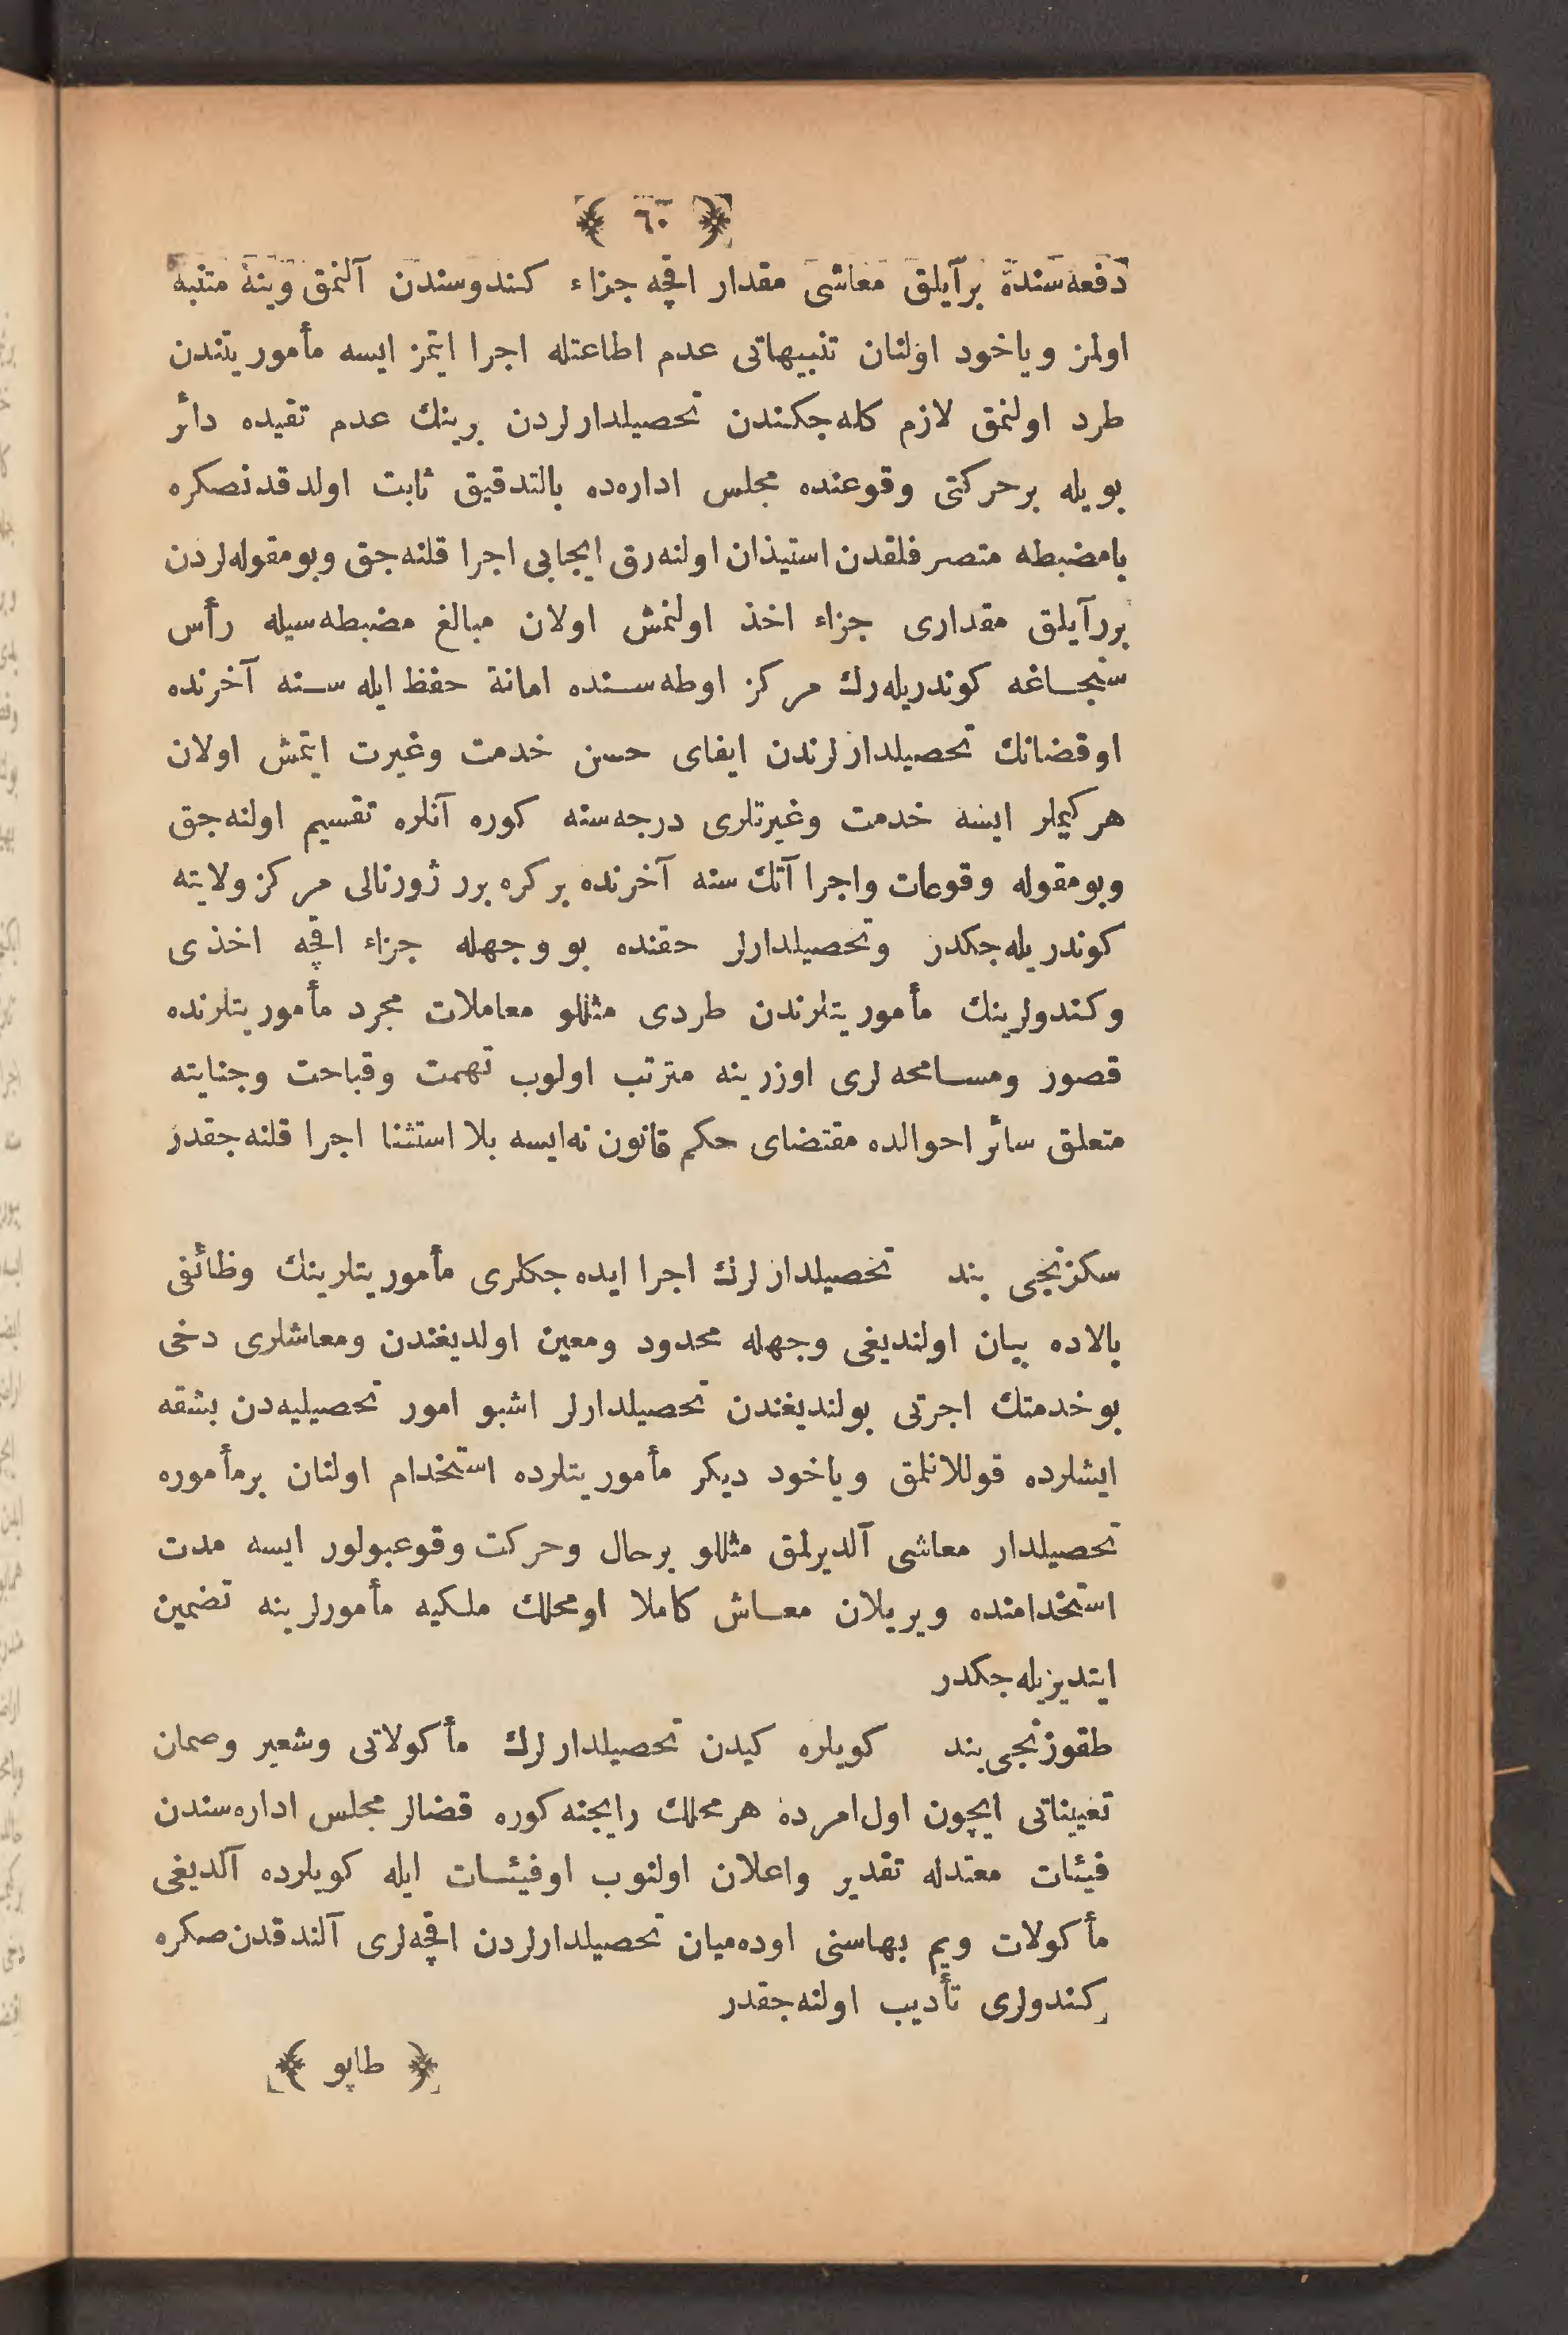 ﴿ ٦٠ ﴾
دفعه‌سنده بر آیلق معاشی مقدار اقچه جزاء کندوسندن آلنمق وینه متنبه
اولمز ویاخود اولنان تنبیهاتی عدم اطاعتله اجرا ایتمز ایسه مأموریتندن
طرد اولنمق لازم کله‌جکندن تحصیلدارلردن برینك عدم تقیده دائر
بویله برحرکتی وقوعنده مجلس اداره‌ده بالتدقیق ثابت اولدقدنصکره
بامضبطه متصرفلقدن استیذان اولنه‌رق ایجابی اجرا قلنه‌جق وبومقوله‌لردن
برر آیلق مقداری جزاء اخذ اولنمش اولان مبالغ مضبطه‌سیله رأس
سنجاغه کوندریله‌رك مرکز اوطه‌سنده امانة حفظ ایله سنه آخرنده
اوقضانك تحصیلدارلرندن ایفای حسن خدمت وغیرت ایتمش اولان
هرکیملر ایسه خدمت وغیرتلری درجه‌سنه کوره آنلره تقسیم اولنه‌جق
وبومقوله وقوعات واجراآتك سنه آخرنده برکره برر ژورنالی مرکز ولایته
کوندریله‌جکدر وتحصیلدارلر حقنده بو وجهله جزاء اقچه اخذی
وکندولرینك مأموریتلرندن طردی مثللو معاملات مجرد مأموریتلرنده
قصور ومسامحه لری اوزرینه مترتب اولوب تهمت وقباحت وجنایته
متعلق سائر احوالده مقتضای حکم قانون نه‌ایسه بلا استثنا اجرا قلنه‌جقدر
سکزنجی بند تحصیلدارلرك اجرا ایده‌جکلری مأموریتلرینك وظائفی
بالاده بیان اولندیغی وجهله محدود ومعین اولدیغندن ومعاشلری دخی
بوخدمتك اجرتی بولندیغندن تحصیلدارلر اشبو امور تحصیلیه‌دن بشقه
ایشلرده قوللانلمق ویاخود دیکر مأموریتلرده استخدام اولنان برمأموره
تحصیلدار معاشی آلدیرلمق مثللو برحال وحرکت وقوعبولور ایسه مدت
استخدامنده ویریلان معاش کاملا اومحلك ملکیه مأمورلرینه تضمین
ایتدیریله‌جکدر
طقوزنجی بند کویلره کیدن تحصیلدارلرك مأکولاتی وشعیر وصمان
تعییناتی ایچون اول‌امرده هرمحلك رایجنه کوره قضالر مجلس اداره‌سندن
فیئات معتدله تقدیر واعلان اولنوب اوفیئات ایله کویلرده آلدیغی
مأکولات ویم بهاسنی اوده‌میان تحصیلدارلردن اقچه‌لری آلندقدن‌صکره
کندولری تأدیب اولنه‌جقدر
﴿ طاپو ﴾